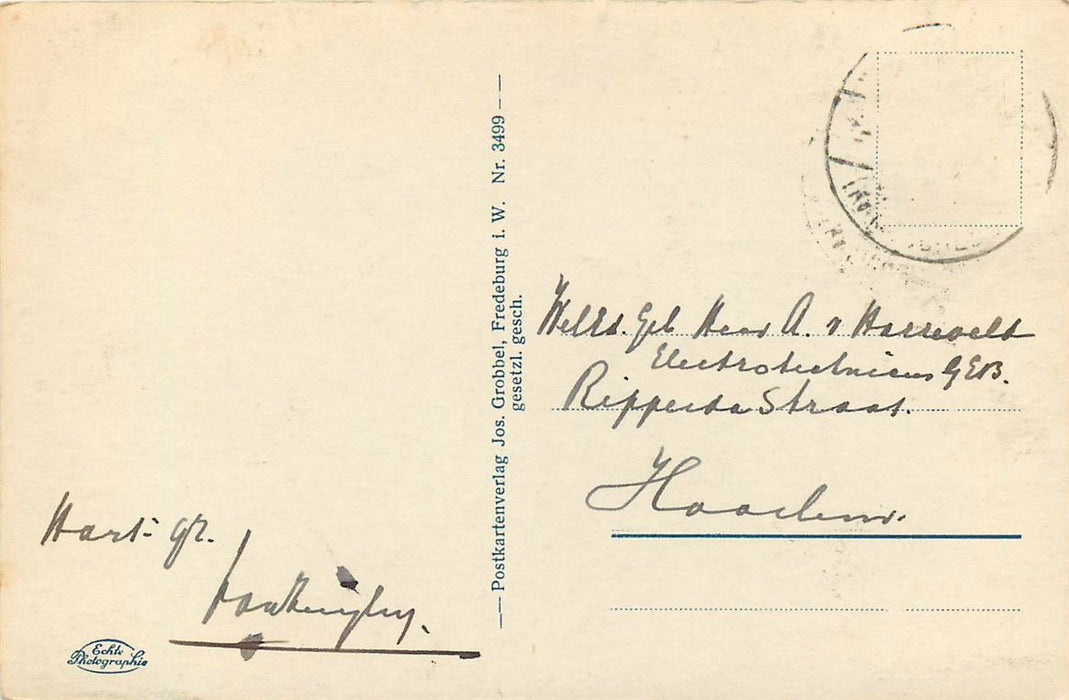 Hart. gr.
Echte
Photographie
— Postkartenverlag Jos. Grobbel, Fredeburg i. W. Nr. 3499 —
gesetzl. gesch.
WelEd. Geb Heer A. v Harrevelt
Electrotechnicus GEB.
Ripperda Straat.
Haarlem.